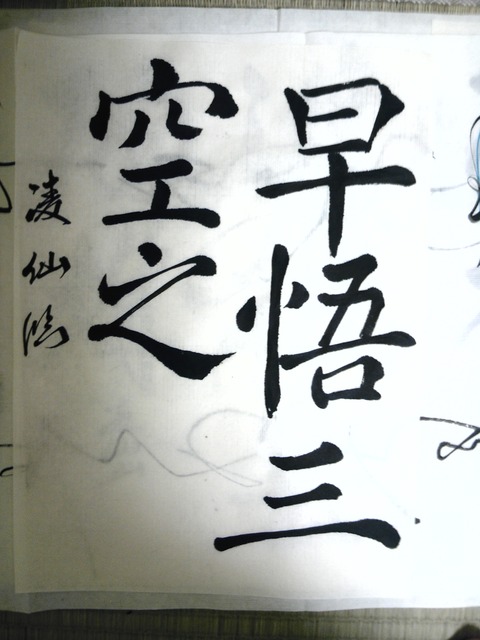 早悟三
空之
凌仙臨